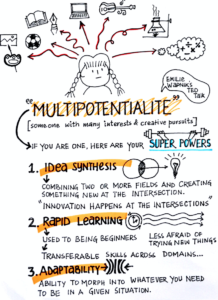 EMILIE
WAPNICK'S
TED
TALK
"MULTIPOTENTIALITE"
[someone with many interests & creative pursuits]
IF YOU ARE ONE, HERE ARE YOUR
SUPER POWERS
1. IDEA SYNTHESIS
COMBINING TWO OR MORE FIELDS AND CREATING
SOMETHING NEW AT THE INTERSECTION.
"INNOVATION HAPPENS AT THE INTERSECTIONS"
2. RAPID LEARNING
USED TO BEING BEGINNERS
LESS AFRAID OF
TRYING NEW THINGS
TRANSFERABLE SKILLS ACROSS DOMAINS...
3. ADAPTABILITY
ABILITY TO MORPH INTO WHATEVER YOU NEED
TO BE IN A GIVEN SITUATION.